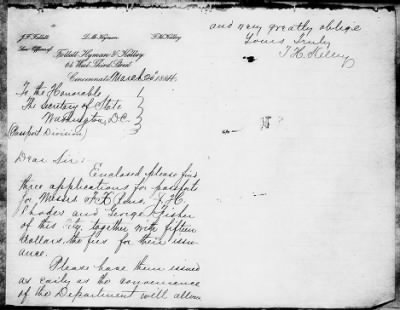 J.F. Follett D.M. Hyman T.H. Kelley
Law Offices of
Follett, Hyman & Kelley
64 West Third Street
Cincinnati March 1884.
To the Honorable
The Secretary of State
Washington, D.C.
(Passport Division)
Dear Sir:
Enclosed please find
three applications for passports
for Messrs F. H.
Rhodes and George Fisher
of this City, together with fifteen
dollars, the fees for their issu-
ance.
Please have them issued
as early as the convenience
of the Department will allow
and very greatly oblige
Yours Truly
T. H. Kelley